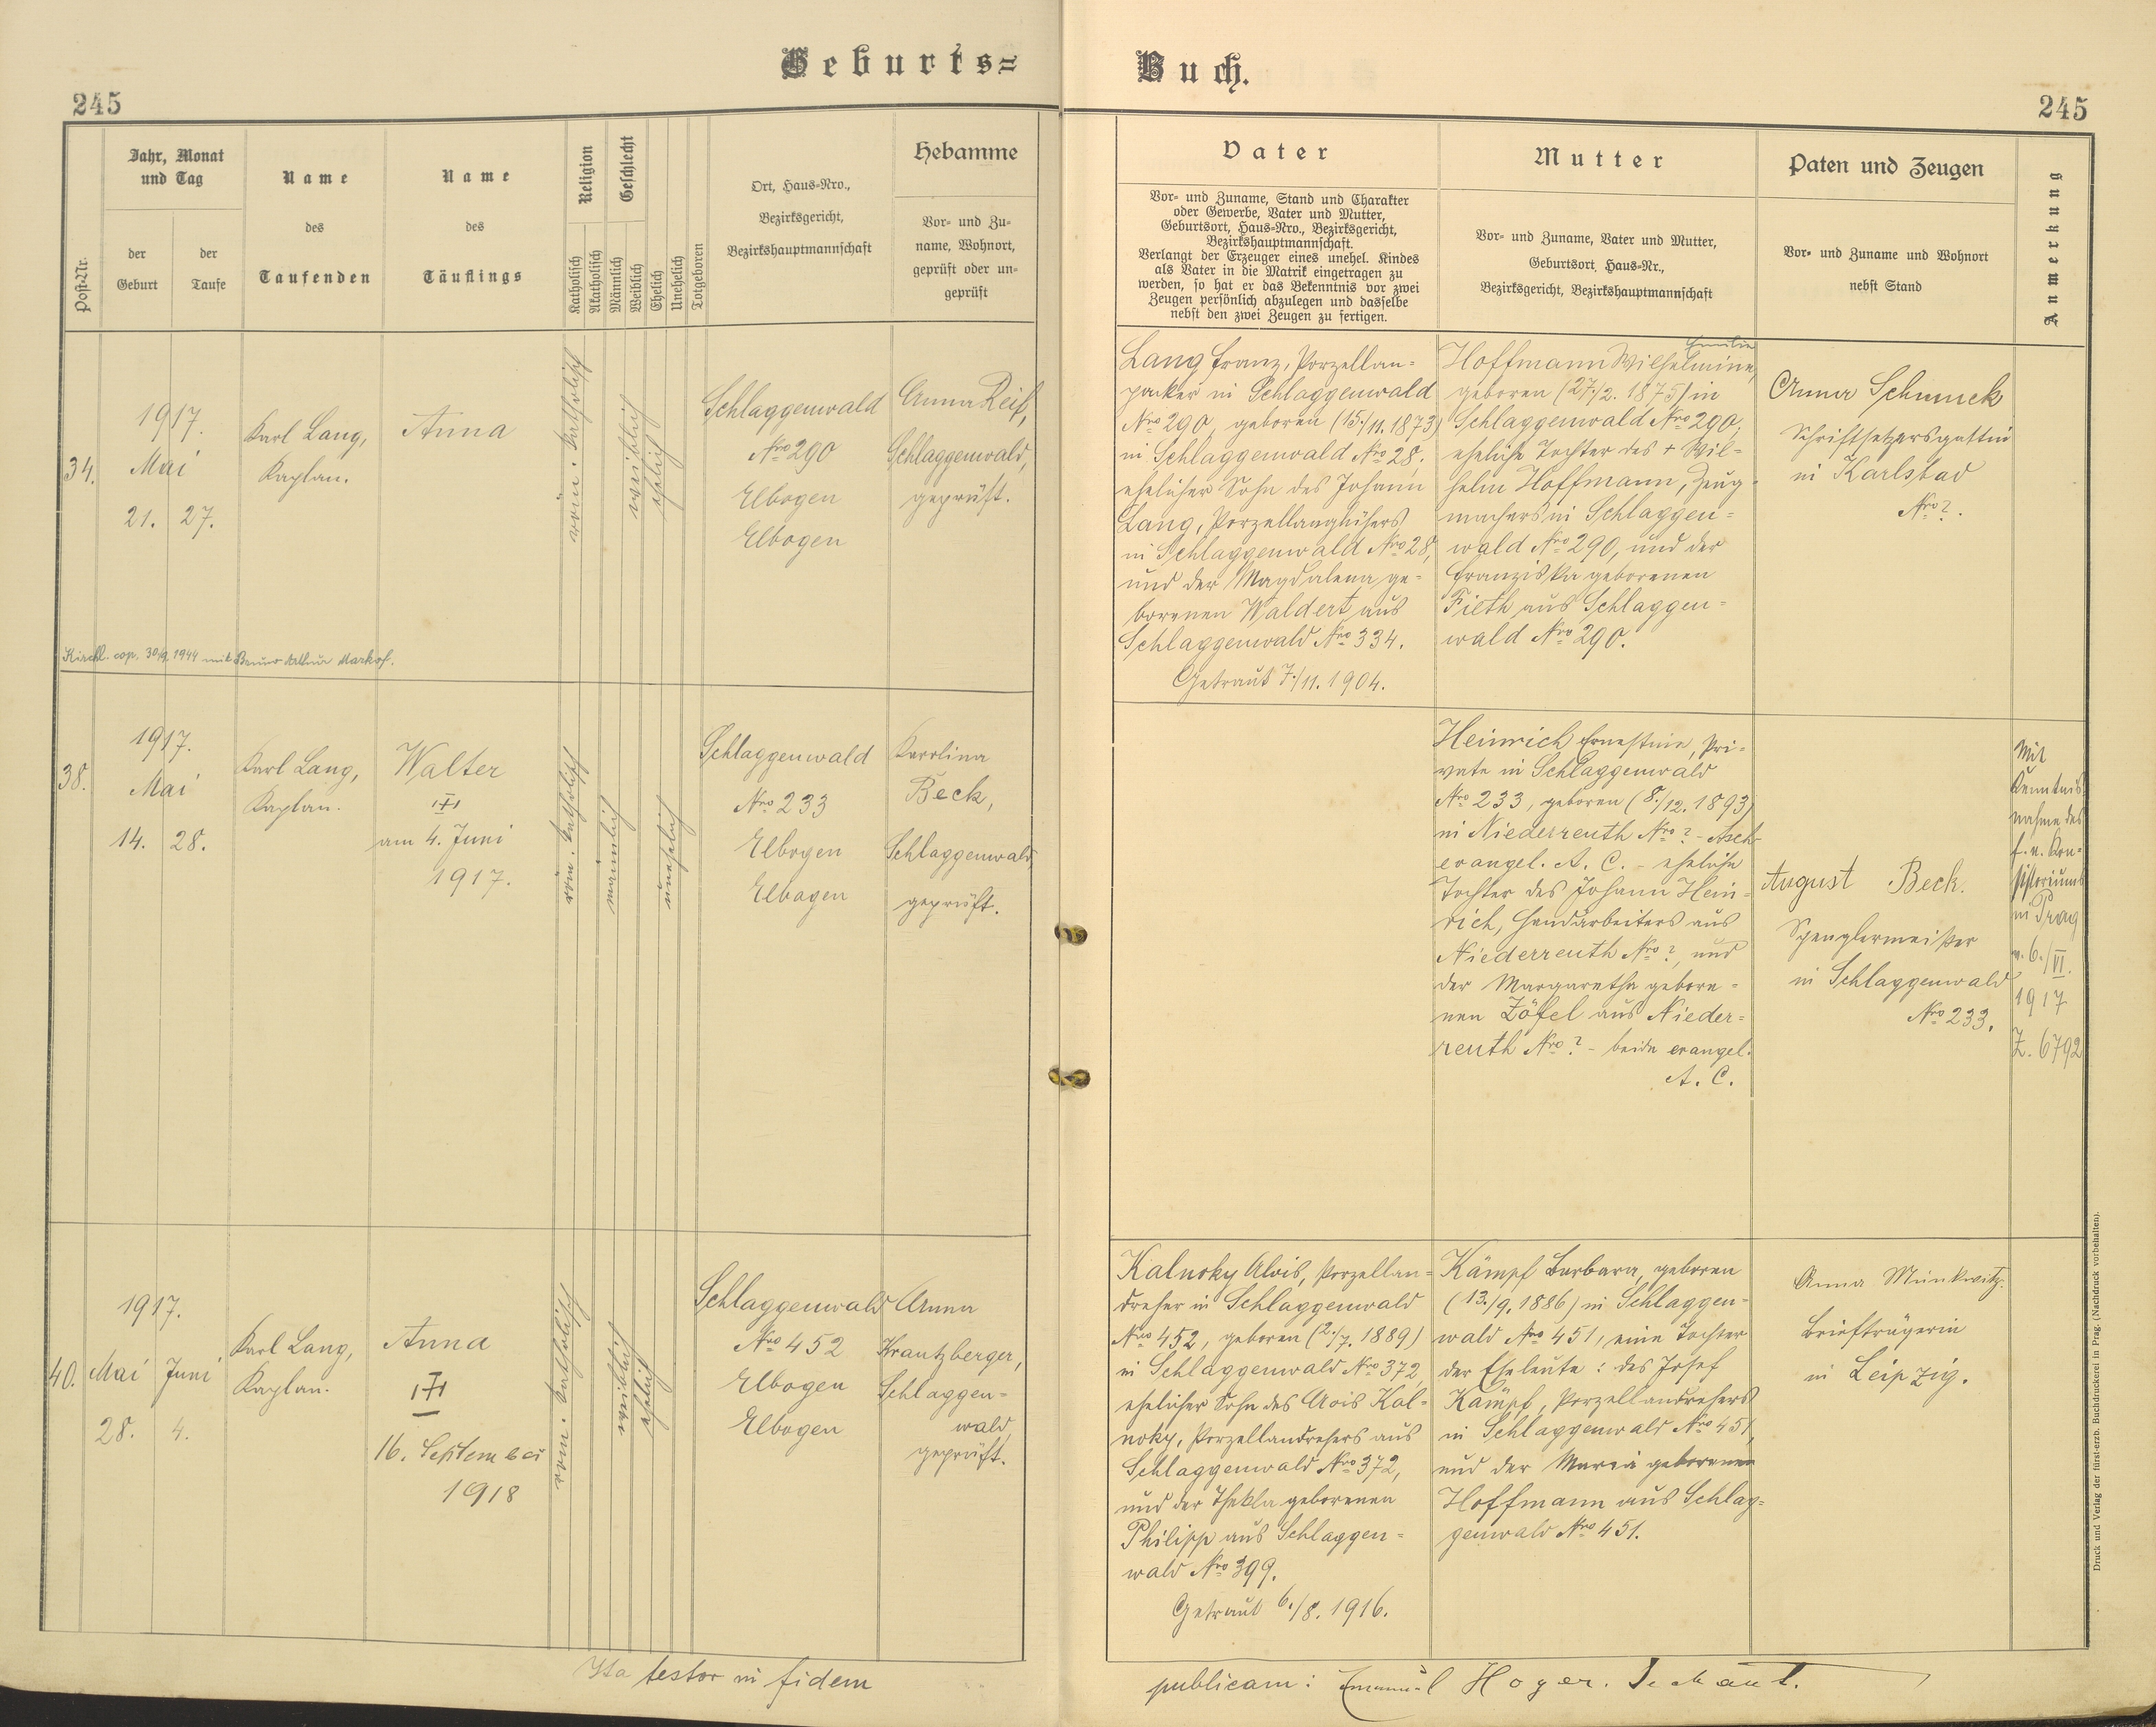 Geburts=
Buch.
245
245
Post-Nr.
Jahr, Monat
und Tag
der
Geburt
der
Taufe
Name
des
Taufenden
Name
des
Täuflings
Religion
Katholisch
Akatholisch
Geschlecht
Männlich
Weiblich
Ehelich
Unehelich
Totgeboren
Ort, Haus=Nro.,
Bezirksgericht,
Bezirkshauptmannschaft
Hebamme
Vor= und Zu=
name, Wohnort,
geprüft oder un=
geprüft
Vater
Vor= und Zuname, Stand und Charakter
oder Gewerbe, Vater und Mutter,
Geburtsort, Haus=Nro., Bezirksgericht,
Bezirkshauptmannschaft.
Verlangt der Erzeuger eines unehel. Kindes
als Vater in die Matrik eingetragen zu
werden, so hat er das Bekenntnis vor zwei
Zeugen persönlich abzulegen und dasselbe
nebst den zwei Zeugen zu fertigen.
Mutter
Vor= und Zuname, Vater und Mutter,
Geburtsort, Haus=Nr.,
Bezirksgericht, Bezirkshauptmannschaft
Paten und Zeugen
Vor= und Zuname und Wohnort
nebst Stand
Anmerkung
34.
1917.
Mai
21. 27.
Karl Lang,
Kaplan.
Anna
röm. katholisch
weiblich
ehelich
Schlaggenwald
Nro 290
Elbogen
Elbogen
Anna Reif,
Schlaggenwald,
geprüft.
Lang Franz, Porzellan=
packer in Schlaggenwald
Nro 290, geboren (15./11. 1873)
in Schlaggenwald Nro 28,
ehelicher Sohn des Johann
Lang, Porzellanglühers
in Schlaggenwald Nro 28,
und der Magdalena ge=
borenen Waldert aus
Schlaggenwald Nro 334.
Getraut 7./11. 1904.
Emilie
Hoffmann Wilhelmine,
geboren (27./2. 1875) in
Schlaggenwald Nro 290,
eheliche Tochter des + Wil=
helm Hoffmann, Zeug=
machers in Schlaggen=
wald Nro 290, und der
Franziska geborenen
Fieth aus Schlaggen=
wald Nro 290.
Anna Schmuck
Schriftsetzersgattin
in Karlsbad
Nro ?.
Kirchl. cop. 30/9. 1944 mit Bruno Arthur Markof.
38.
1917.
Mai
14. 28.
Karl Lang,
Kaplan.
Walter
am 4. Juni
1917.
röm. katholisch
männlich
unehelich
Schlaggenwald
Nro 233
Elbogen
Elbogen
Karolina
Beck,
Schlaggenwald,
geprüft.
Heinrich Ernestine, Pri=
vate in Schlaggenwald
Nro 233, geboren (8./12. 1893)
in Niederreuth Nro ? - Asch
evangel. A. C. - eheliche
Tochter des Johann Hein=
rich, Handarbeiters aus
Niederreuth Nro ?, und
der Margaretha gebore=
nen Zöfel aus Nieder=
reuth Nro ? - beide evangel.
A. C.
August Beck.
Spenglermeister
in Schlaggenwald
Nro 233.
Mit
Kenntnis
nahme des
f. e. Kon=
sistoriums
in Prag
v. 6./VI.
1917
Z. 6792
40.
1917.
Mai Juni
28. 4.
Karl Lang,
Kaplan.
Anna
16. September
1918
röm. katholisch
weiblich
ehelich
Schlaggenwald
Nro 452
Elbogen
Elbogen
Anna
Krantzberger,
Schlaggen=
wald,
geprüft.
Kalnoky Alois, Porzellan=
dreher in Schlaggenwald
Nro 452, geboren (2./7. 1889)
in Schlaggenwald Nro 372,
ehelicher Sohn des Alois Kal=
noky, Porzellandrehers aus
Schlaggenwald Nro 372,
und der Thekla geborenen
Philipp aus Schlaggen=
wald Nro 399.
Getraut 6./8. 1916.
Kämpf Barbara, geboren
(13./9. 1886) in Schlaggen=
wald Nro 451, eine Tochter
der Eheleute: des Josef
Kämpf, Porzellandrehers
in Schlaggenwald Nro 451,
und der Maria geborenen
Hoffmann aus Schlag=
genwald Nro 451.
Anna Münkwitz
Briefträgerin
in Leipzig.
Ita testor in fidem
publicam: Emanuel Hoyer. Dechant.
Druck und Verlag der fürst-erzb. Buchdruckerei in Prag. (Nachdruck vorbehalten).